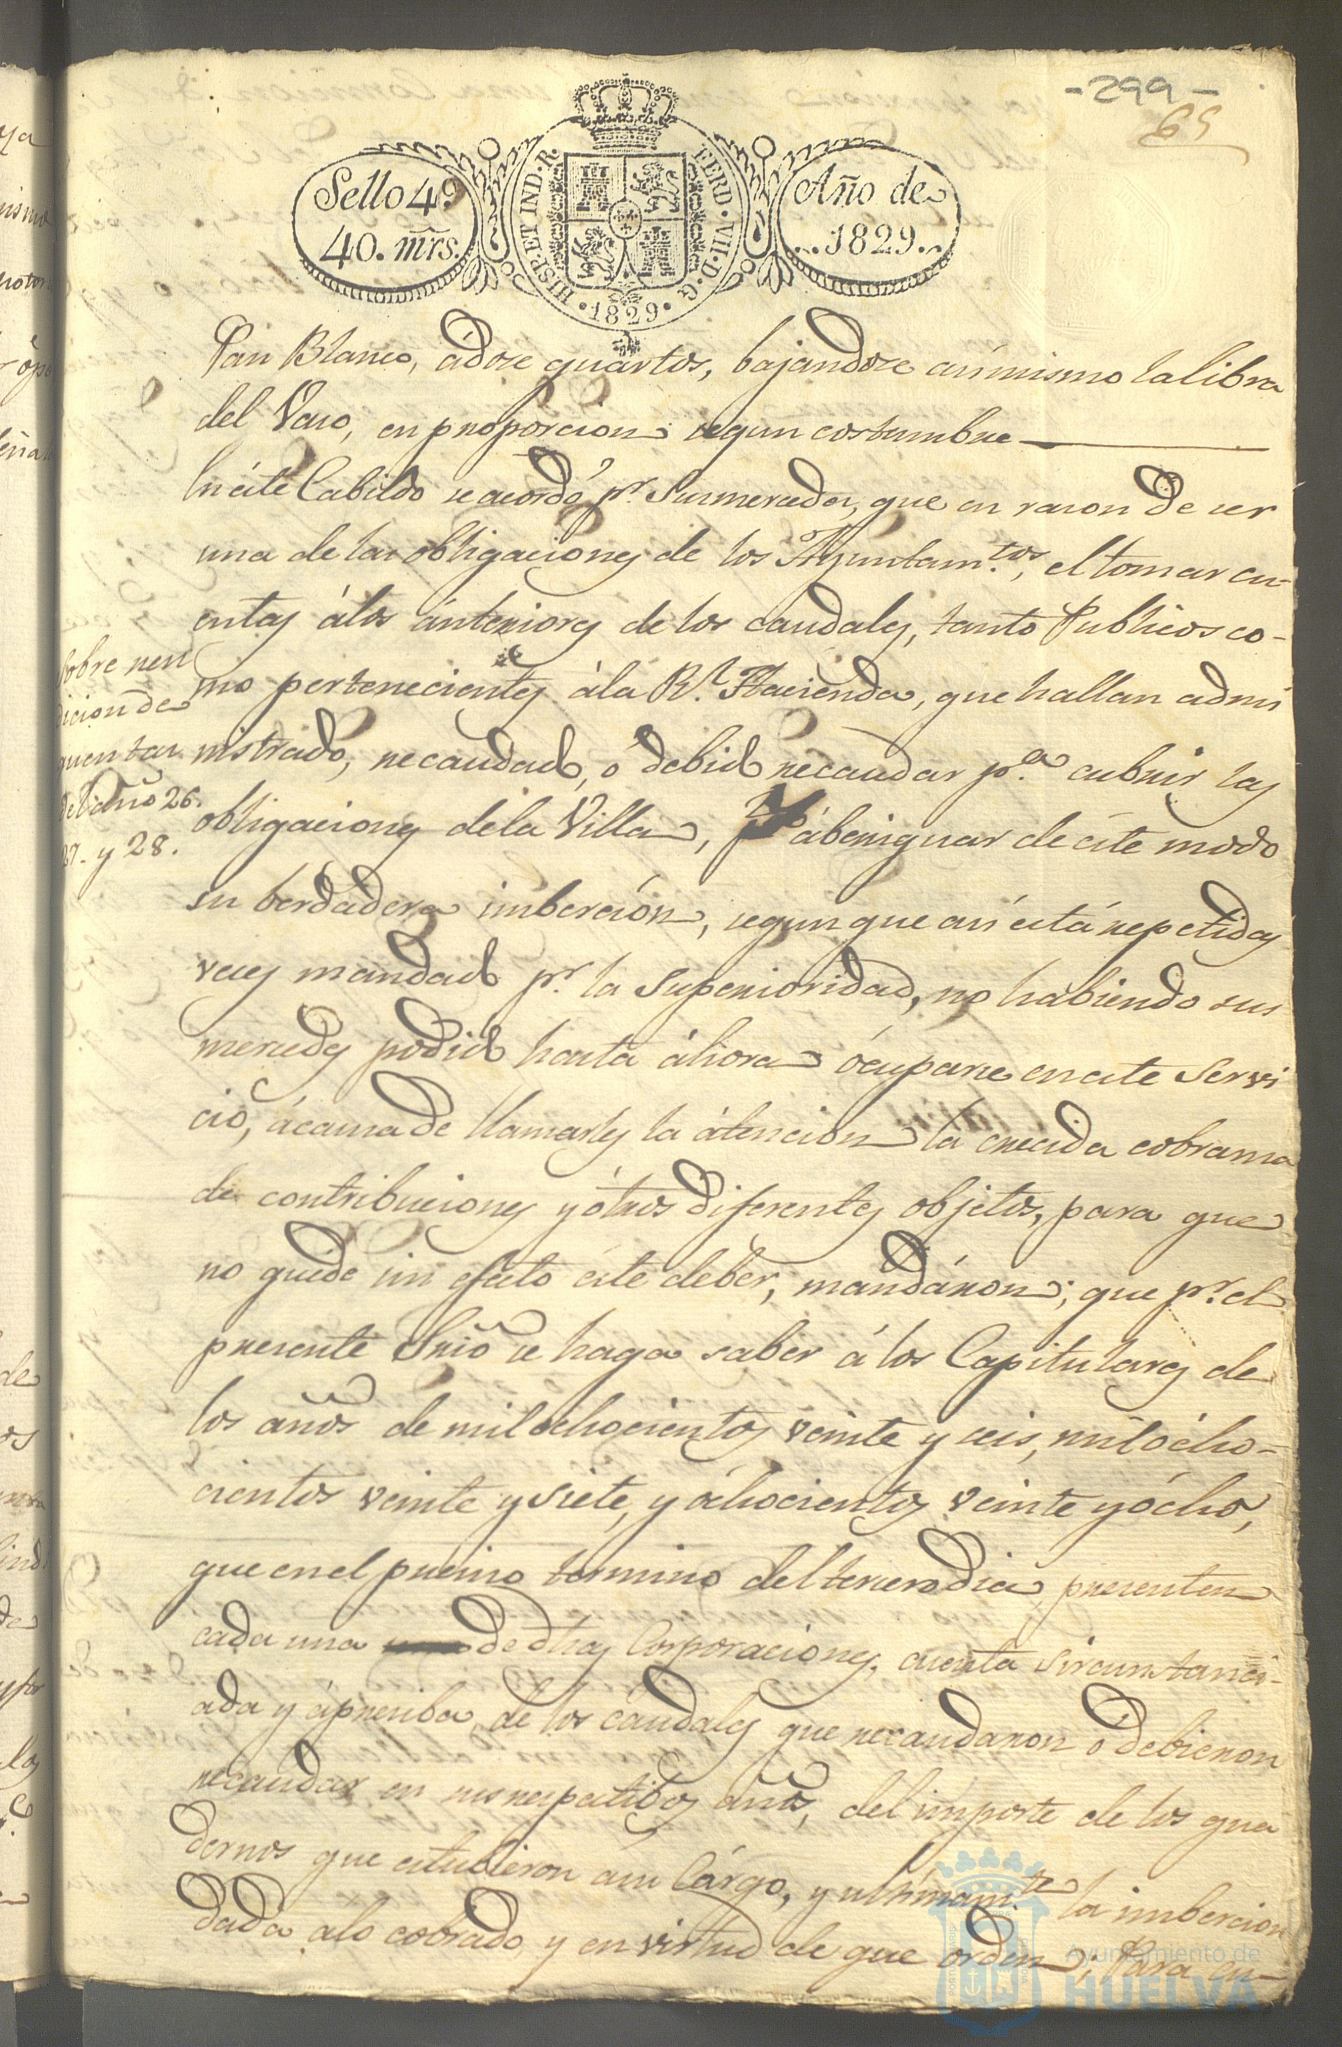 -299-
65
Sello 4º
40. mrs.
HISP. ET IND. R.
FERD. VII. D. G.
1829
Año de
1829.
Pan Blanco, ádose quartos, bajandose asimismo la libra
del Vaso, en proporcion segun costumbre
En éste Cabildo se acordó pr. Susmercedes, que en rason de ser
una de las obligaciones de los Ayuntam.tos, el tomar cu-
entas á los ánteriores de los caudales, tanto Publicos co-
mo pertenecientes ála Rl. Hacienda, que hallan admi
nistrado, recaudado, ó debido recaudar pa. cubrir las
obligaciones de la Villa, pa ábeniguar de éste modo
su berdadera imberción, segun que asi está repetidas
veces mandado pr. la Superioridad, no habiendo sus
mercedes podido hasta áhora ócuparse en este Servi
cio, ácausa de llamarles la átencion la crecida cobransa
de contribuciones y ótros diferentes objetos, para que
no quede sin efecto éste deber, mandáron; que pr. el
presente Srio se haga saber á los Capitulares de
los años de mil ochocientos veinte y seis, mil ócho-
cientos veinte y siete, y óchocientos veinte y ócho,
que en el preciso termino del tercero dia, presenten
cada una de dhas Corporaciones, cuenta sircunstanci-
ada y ápreciba, de los caudales que recaudaron ó debieron
recaudar en sus respectibos años, del importe de los qua
dernos que estubieron asu Cárgo, y ultimam.te la imbercion
dada alo cobrado, y en virtud de que orden; Para cu-
Sobre ren
dicion de
quentas
del año 26.
27. y 28.
Ayuntamiento de
HUELVA